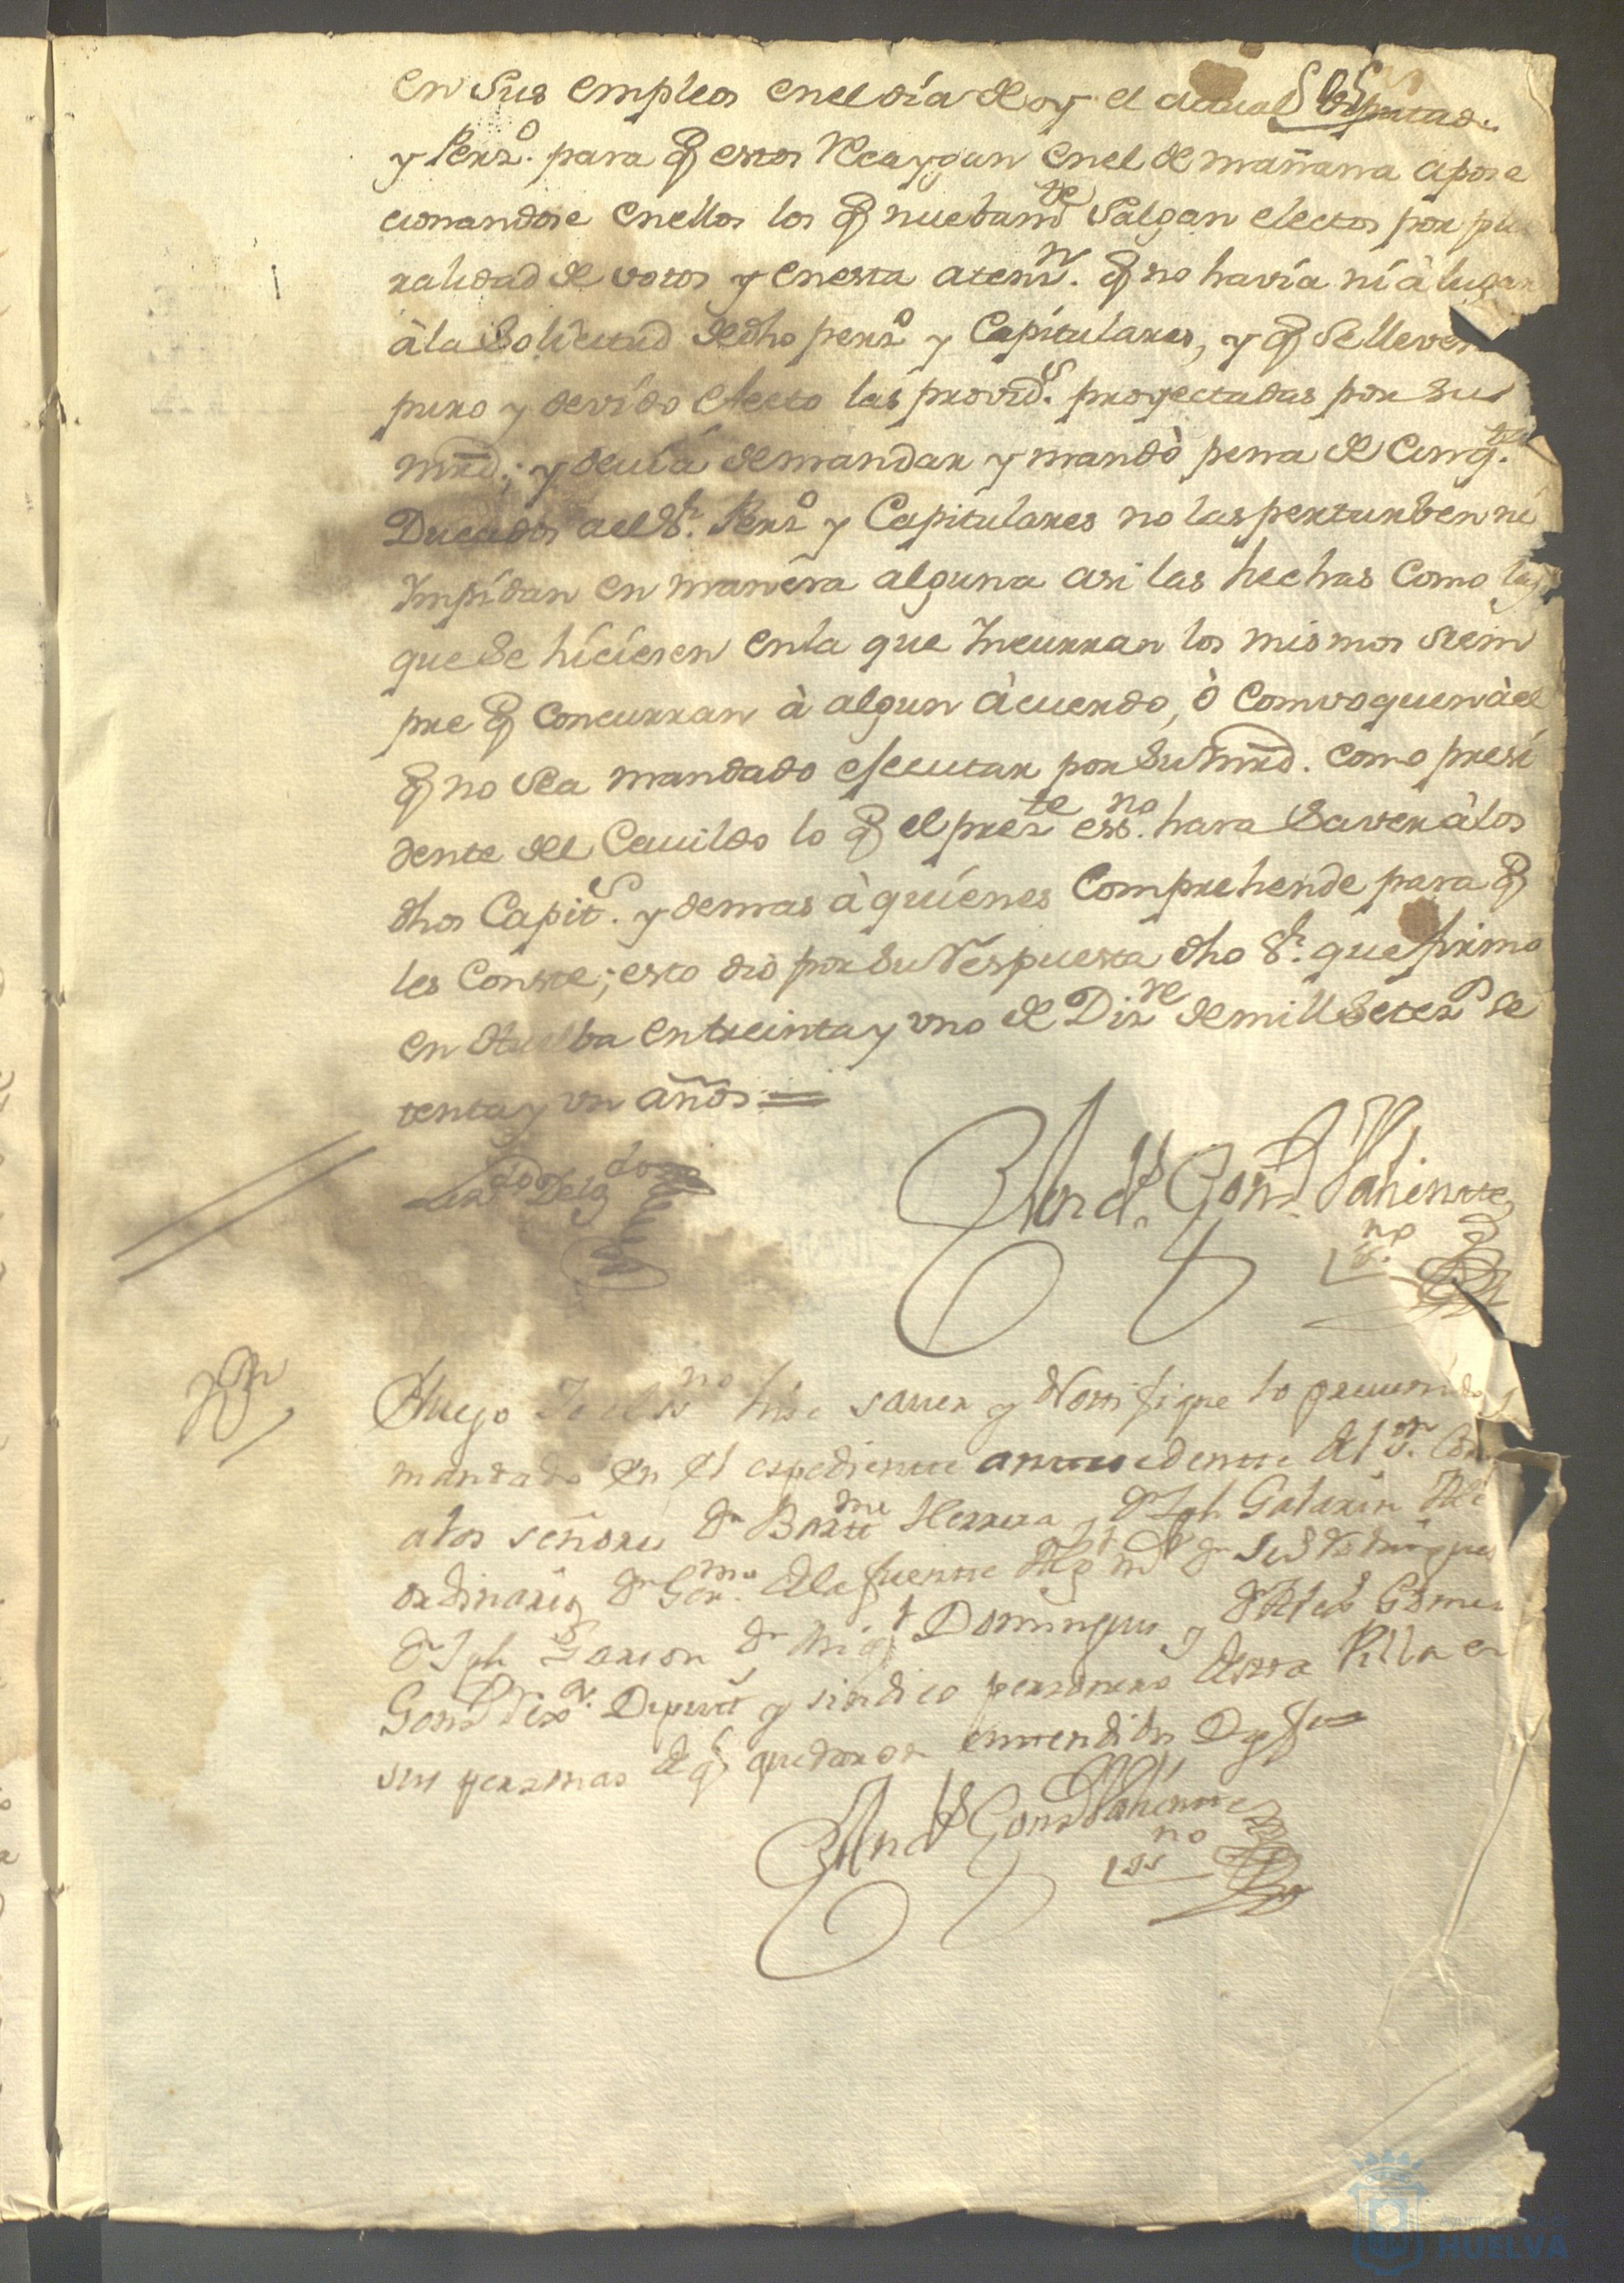 en sus empleos en el día de oy el actual Diputad.
y Perso. para q estos recaygan en el de mañana apose
cionandose en ellos los q nuebamte salgan electos por plu
ralidad de votos y en esta atenn. q no havía ni à lugar
à la Solicitud de dho perso y Capitulares, y q se lleven
puro y devído efecto las provids. proyectadas por su
mrd.; y devía de mandar y mandò pena de cinqta.
Ducados a el Sr. Perso y Capitulares no las perturben ni
Impídan en manera alguna asi las hechas como las
que se hícíesen en la que Incurran los mismos siem
pre q concurran à algun àcuerdo, ò comvoquen à el
q no sea mandado efecutar por su mrd. como presi
dente del Cavildo lo q el preste essno. hara saver à los
dhos Capits. y demas à quíenes comprehende para q
les conste; esto dió por su respuesta dho Sr. que firmo
en Huelba en treinta y uno de Dizre de mill seteos se
tenta y un años =
Lizdo Delgdo
Ands. Gonz Vahiente
Essno
Nn
Luego Yo el Essno hise saver y Notifique lo prevenido y
mandado en el espediente antecedente del Sr. Cor
a los señores Dn Bartme Herrera y Dn Jph Galarin Alc
ordinarios Dn Germo. de la fuente Algl mr Dn
Dn Jph Garson Dn Migl Dominguez y Dn Alexo Gomez
Gonz Diputs y sindico personero desta Villa en
sus personas de q quedaron entendidos Doy fee =
Ands Gonz Vahiente
Essno
Ayuntamiento de
HUELVA